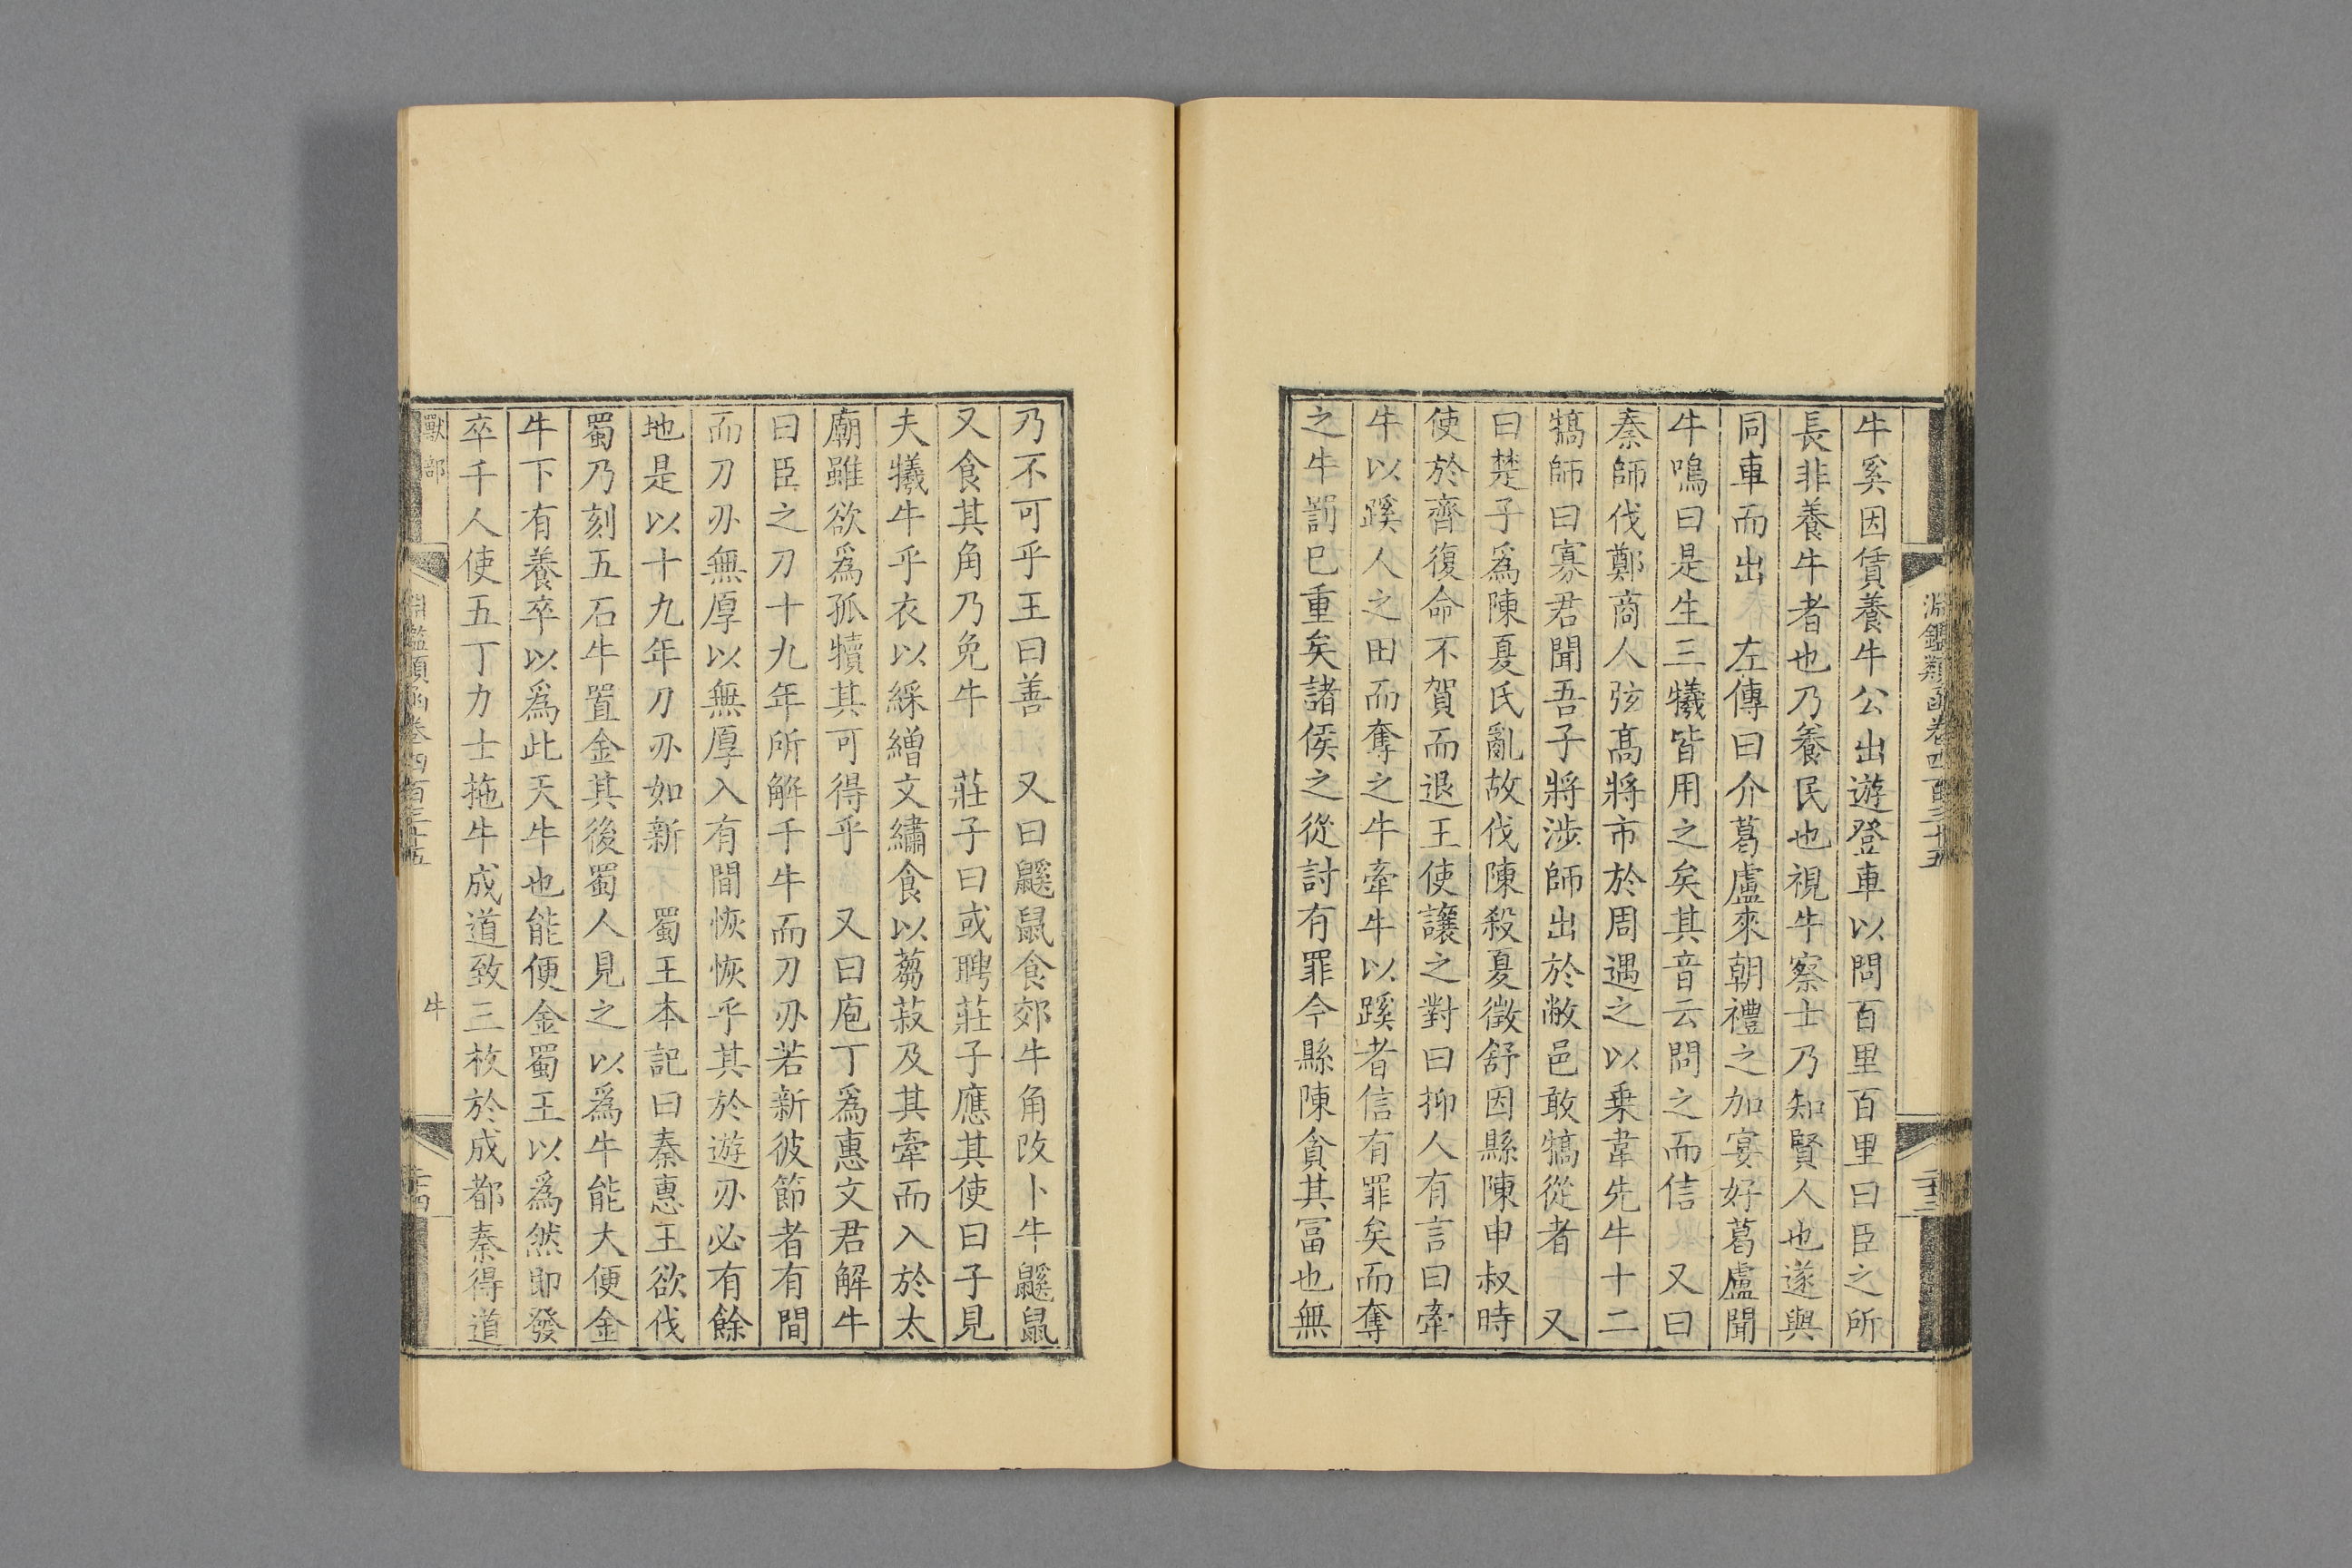 淵鑑類函卷四百三十五
二十三
牛奚因賃養牛公出遊登車以問百里百里曰臣之所
長非養牛者也乃養民也視牛察士乃知賢人也遂與
同車而出　左傳曰介葛盧來朝禮之加宴好葛盧聞
牛鳴曰是生三犧皆用之矣其音云問之而信　又曰
秦師伐鄭商人弦高將市於周遇之以乗韋先牛十二
犒師曰寡君聞吾子將涉師出於敝邑敢犒從者　又
曰楚子爲陳夏氏亂故伐陳殺夏徵舒因縣陳申叔時
使於齊復命不賀而退王使讓之對曰抑人有言曰牽
牛以蹊人之田而奪之牛牽牛以蹊者信有罪矣而奪
之牛罰已重矣諸侯之從討有罪今縣陳貪其冨也無
乃不可乎王曰善　又曰鼷鼠食郊牛角改卜牛鼷鼠
又食其角乃免牛　莊子曰或聘莊子應其使曰子見
夫犧牛乎衣以綵繒文繡食以芻菽及其牽而入於太
廟雖欲爲孤犢其可得乎　又曰庖丁爲惠文君解牛
曰臣之刀十九年所解千牛而刀刃若新彼節者有間
而刀刃無厚以無厚入有間恢恢乎其於遊刃必有餘
地是以十九年刀刃如新　蜀王本記曰秦惠王欲伐
蜀乃刻五石牛置金其後蜀人見之以爲牛能大便金
牛下有養卒以爲此天牛也能便金蜀王以爲然即發
卒千人使五丁力士拖牛成道致三枚於成都秦得道
獸部
淵鑑類函卷四百三十五
牛
二十四